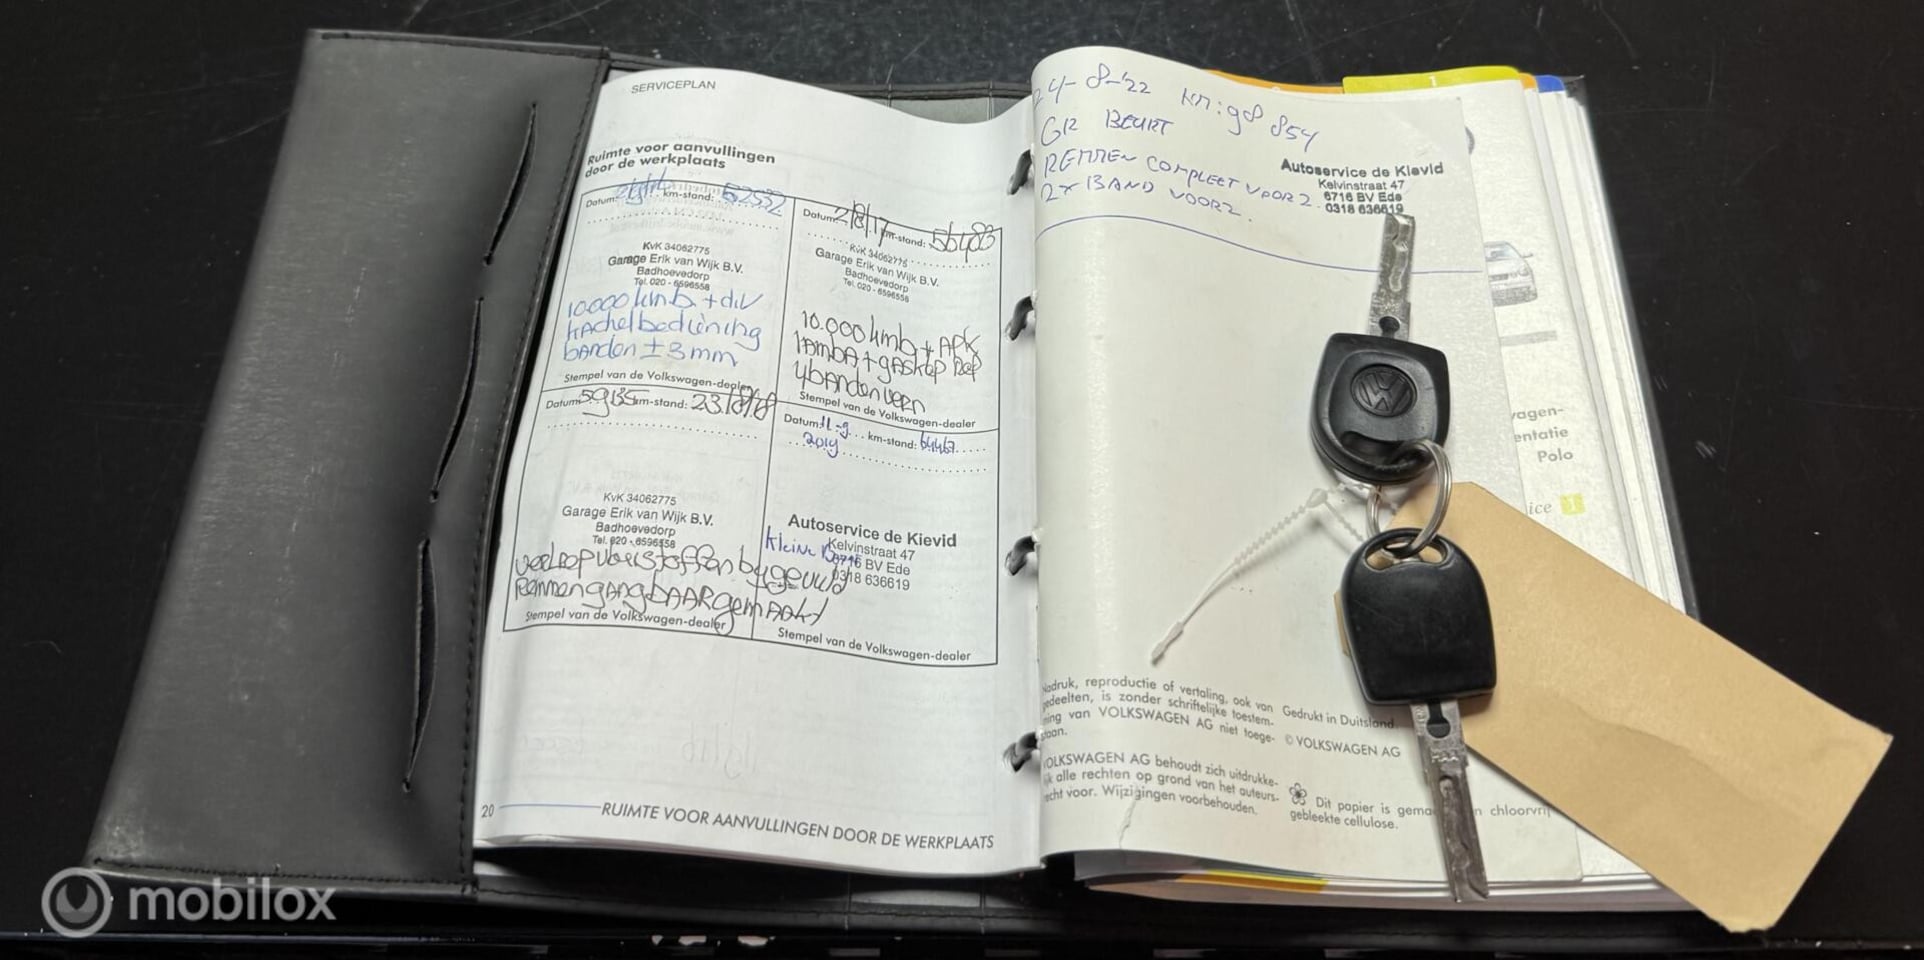 SERVICEPLAN
Ruimte voor aanvullingen
door de werkplaats
Datum: km-stand: 52552
KvK 34062775
Garage Erik van Wijk B.V.
Badhoevedorp
Tel. 020 - 6596558
10.000 kmb. + div
kachelbediening
banden ± 3 mm
Stempel van de Volkswagen-dealer
Datum: 2/8/17 km-stand: 56483
KvK 34062775
Garage Erik van Wijk B.V.
Badhoevedorp
Tel. 020 - 6596558
10.000 kmb + APK
lambda + gasklep Rep
4 banden vern
Stempel van de Volkswagen-dealer
Datum: 59135 km-stand: 23/8/18
KvK 34062775
Garage Erik van Wijk B.V.
Badhoevedorp
Tel. 020 - 6596558
veeRopvloeistoffen bygevuld
Remmen gangbAAR gemAAkt
Stempel van de Volkswagen-dealer
Datum: 11-9 km-stand: 64467
2019
Autoservice de Kievid
Kelvinstraat 47
kleine 6716 BV Ede
0318 636619
Stempel van de Volkswagen-dealer
20 RUIMTE VOOR AANVULLINGEN DOOR DE WERKPLAATS
24-8-'22 KM: 98 854
GR BEURT
REMMEN COMPLEET VOOR2.
2x BAND VOOR2.
Autoservice de Kievid
Kelvinstraat 47
6716 BV Ede
0318 636619
Nadruk, reproductie of vertaling, ook van
gedeelten, is zonder schriftelijke toestem-
ming van VOLKSWAGEN AG niet toege-
staan.
VOLKSWAGEN AG behoudt zich uitdrukke-
lijk alle rechten op grond van het auteurs-
recht voor. Wijzigingen voorbehouden.
Gedrukt in Duitsland
© VOLKSWAGEN AG
Dit papier is gema n chloorvrij
gebleekte cellulose.
1
wagen-
entatie
Polo
ice 1
VW
mobilox